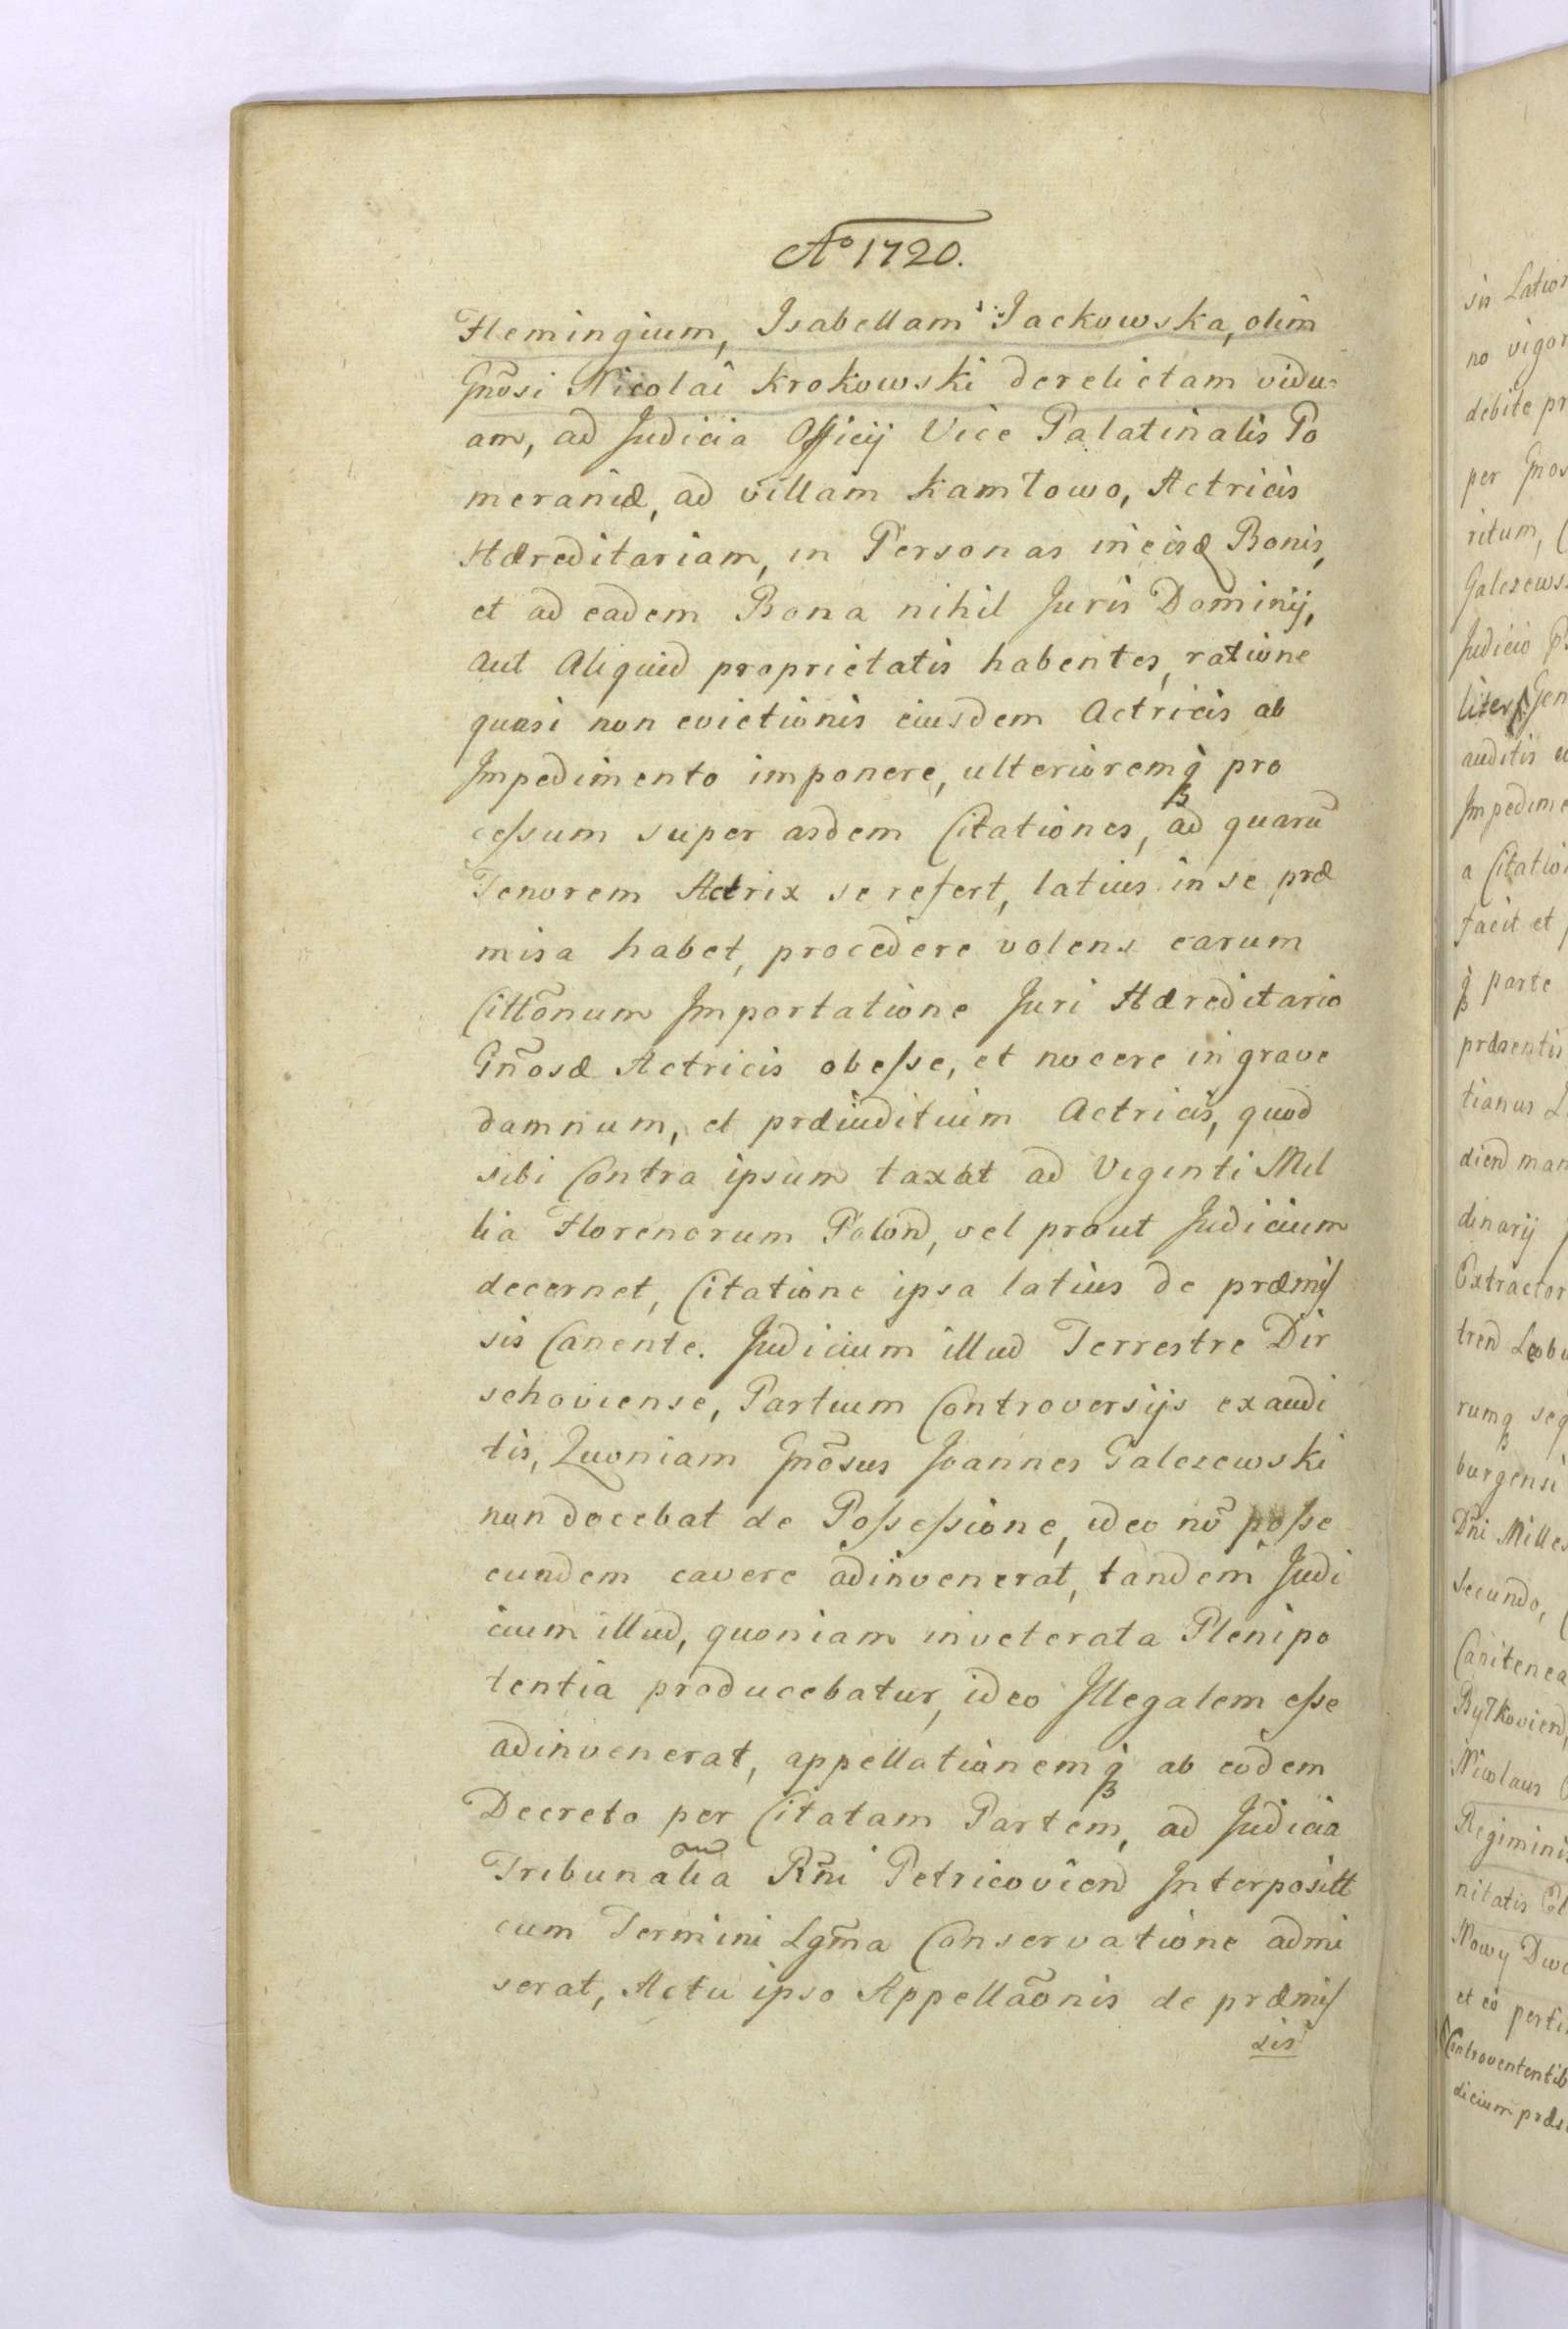 Aº 1720.
Flemingium, Isabellam Jackowska, olim
Gnosi Nicolai Krokowski derelictam vidu-
am, ad Judicia Officij Vice Palatinalis Po
meraniæ, ad villam Kamtowo, Actricis
Hæreditariam, in Personas in eisq Bonis,
et ad eadem Bona nihil Juris Dominij,
aut Aliquid proprietatis habentes, ratione
quasi non evictionis eiusdem Actricis ab
Impedimento imponere, ulterioremq pro
cessum super asdem Citationes, ad quarū
Tenorem Actrix se refert, latius in se præ
misa habet, procedere volens earum
Cittõnum Importatione Juri Hæreditario
Gñosæ Actricis obesse, et nocere in grave
damnum, et præiuditium Actricis, quod
sibi Contra ipsum taxat ad Viginti Mil
lia Florenorum Polond, vel prout Judicium
decernet, Citatione ipsa latius de præmis
sis Canente. Judicium illud Terrestre Dir
schoviense, Partium Controversijs exaudi
tis, Quoniam Gnõsus Joannes Galezewski
non docebat de Possessione, ideo nõ posse
eundem cavere adinvenerat, tandem Judi
cium illud, quoniam inveterata Plenipo
tentia producebatur, ideo Illegalem esse
adinvenerat, appellationemq ab eodem
Decreto per Citatam Partem, ad Judicia
Tribunalia Rñi Petricoviend Interpositt
cum Termini Lgm̃a Conservatione admi
serat, Actu ipso Appellaõnis de præmis
sis
sis Lation
no vigor
debite pr
per Gnos
ritum,
Galezews
Judicio
liter Gen
auditis
Impedime
a Citatio
facit et
q parte
præsentis
tianus
diend man
dinarij
Extractor
trend
rumq seq
burgensi
Dñi Milles
secundo,
Canitenea
Bytkoviend,
Nicolaus
Regiminis
nitatis
Nowy Dwo
et eo perti
Controvententib
dicium præs